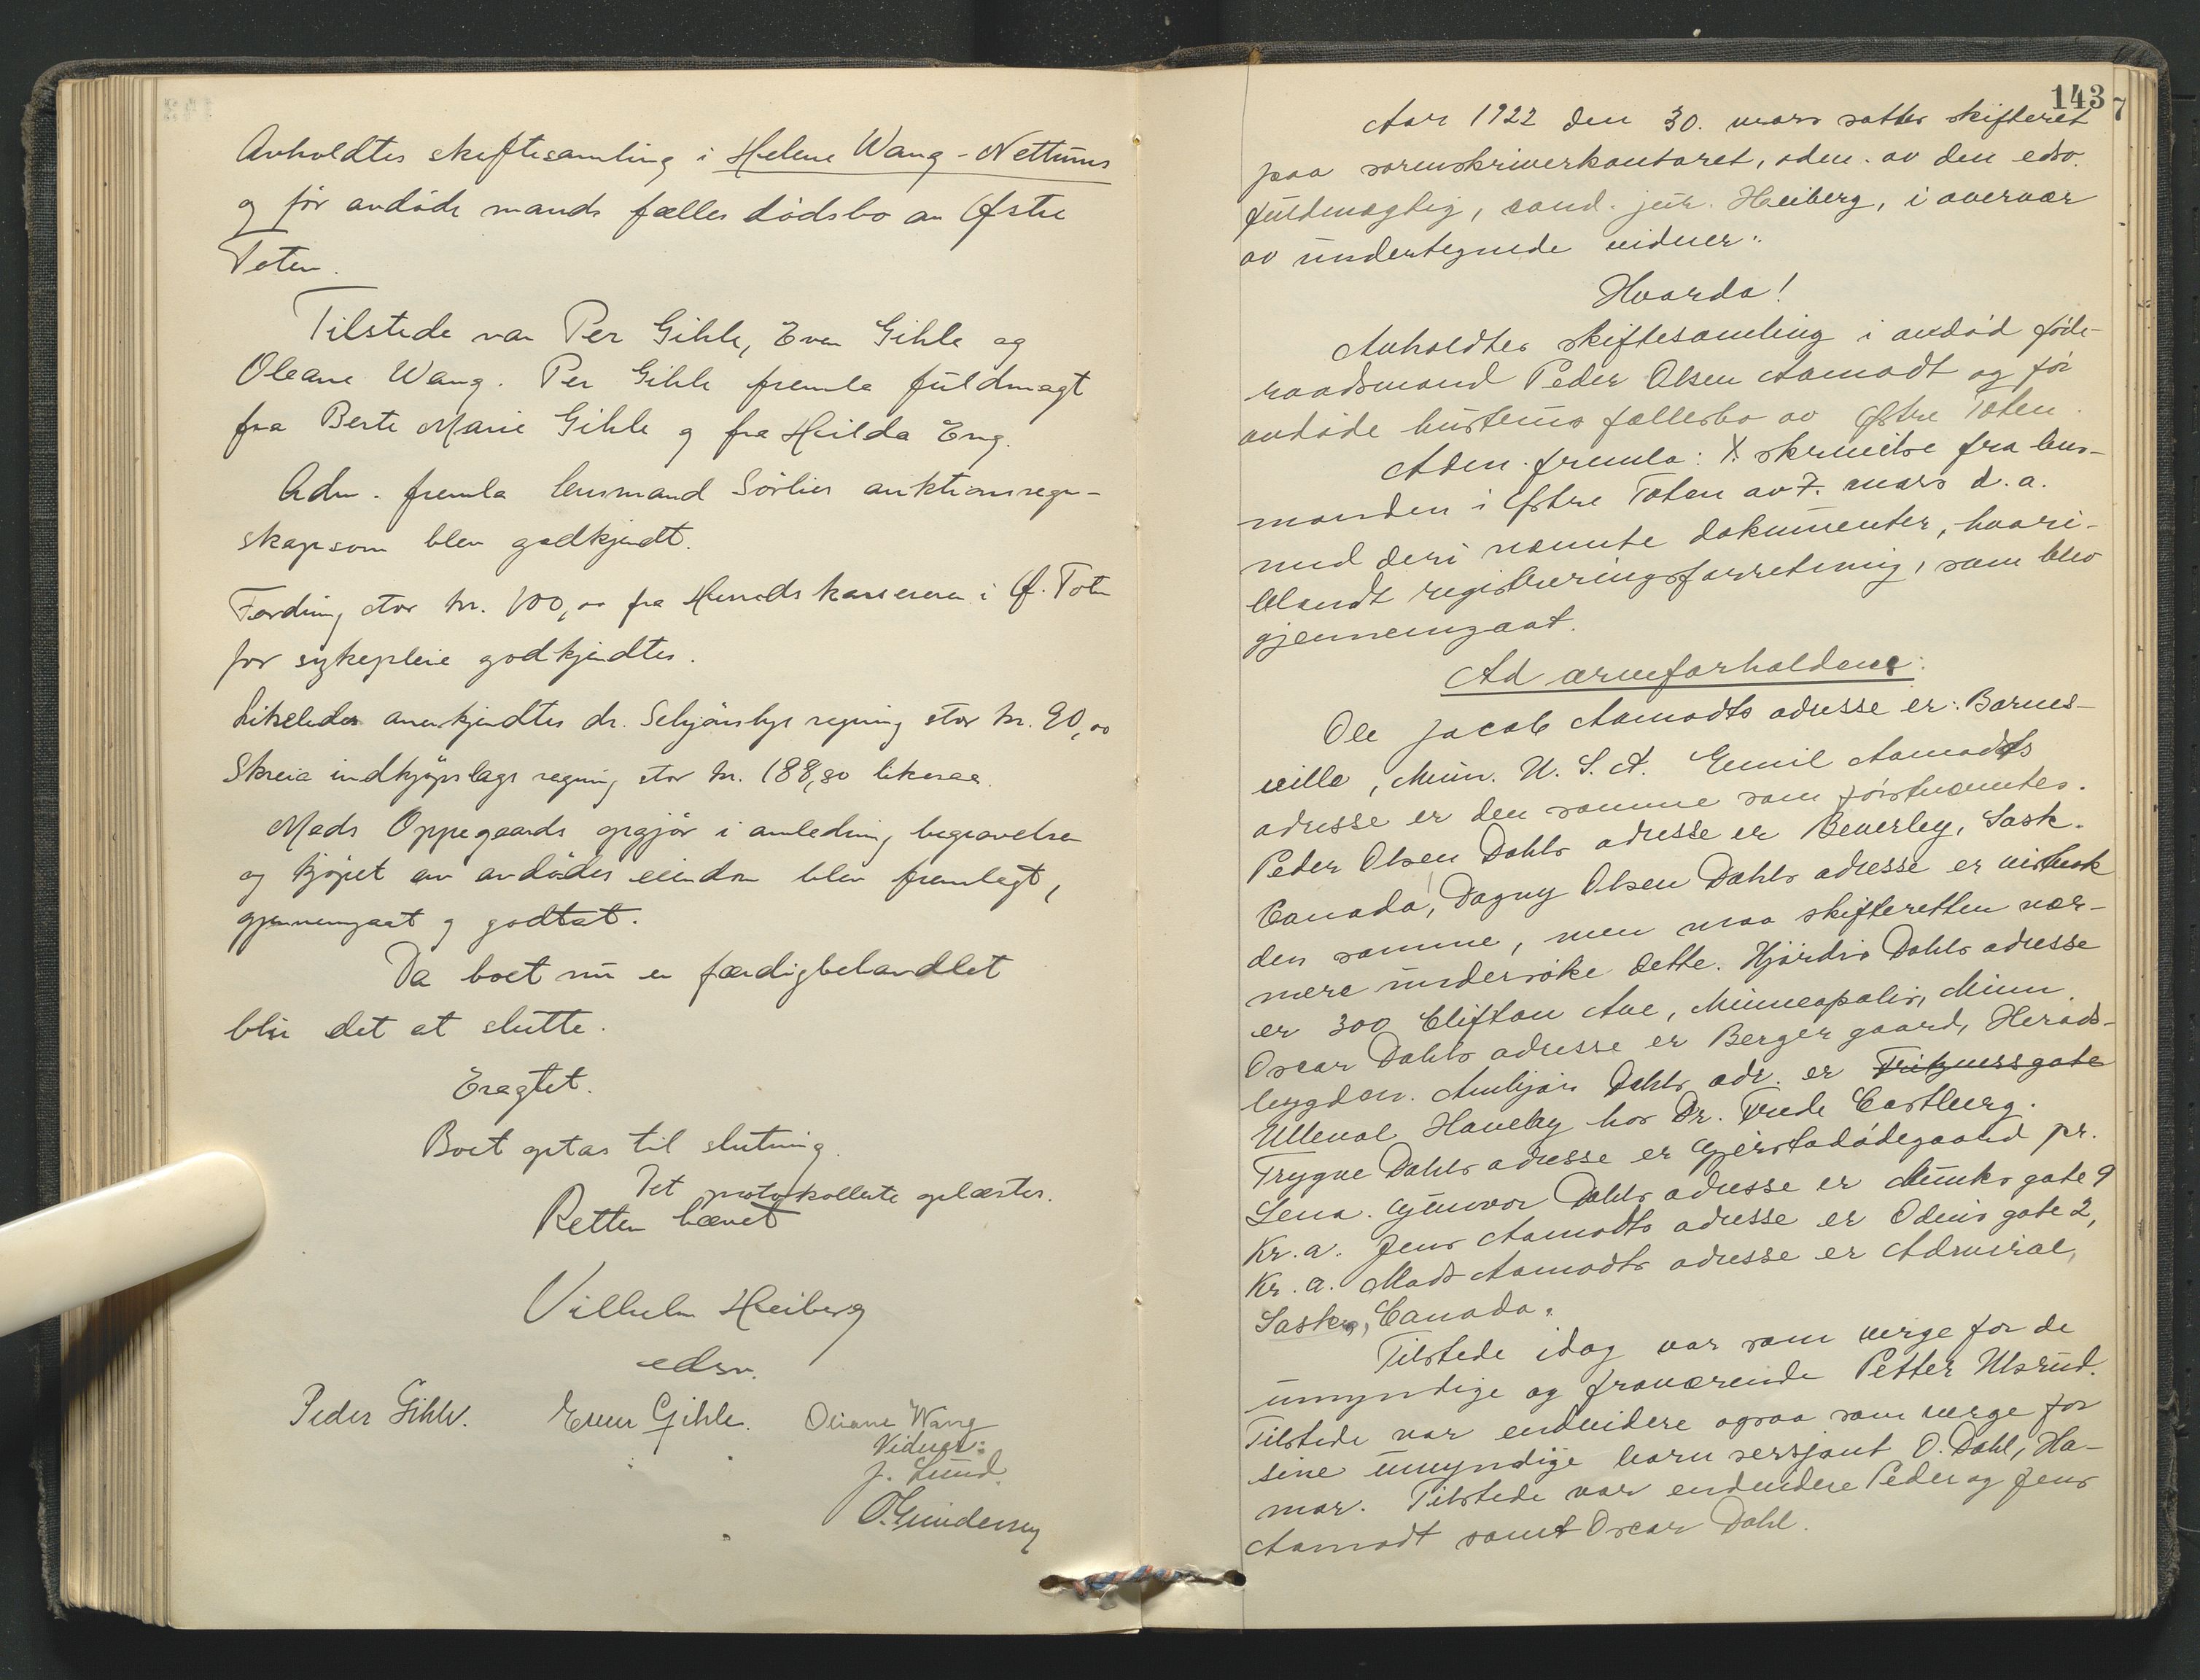 Avholdtes skiftesamling i Helene Wang-Nettums
og før avdøde mands fælles dødsbo av Østre
Toten.
Tilstede var Per Gihle, Even Gihle og
Oleane Wang. Per Gihle fremla fuldmagt
fra Berte Marie Gihle og fra Hilda Eng.
Adm. fremla lensmand Sørlies auktionsregn-
skap som blev godkjendt.
Fordring stor kr. 100,00 fra Herredskassereren i Ø. Toten
for sykepleie godkjendtes.
Likeledes anerkjendtes dr. regning stor kr. 90,00
Skreia indkjøpslags regning stor kr. 188,80 likesaa.
Mads Oppegaards opgjør i anledning begravelsen
og kjøpet av avdødes eiendom blev fremlagt,
gjennemgaat og godtat.
Da boet nu er færdigbehandlet
blir det at slutte.
Eragtet.
Boet optas til slutning.
Det protokollerte oplæstes.
Retten hævet
Vilhelm Heiberg
edsv.
Peder Gihle. Even Gihle. Oleane Wang
Vidner:
J. Lund.
O. Gundersen
143
7
Aar 1922 den 30. mars sattes skifteret
paa sorenskriverkontoret, adm. av den edsv.
fuldmægtig, cand. jur. Heiberg, i overvær
av undertegnede vidner:
Hvorda!
Avholdtes skiftesamling i avdød føde-
raadsmand Peder Olsen Aamodt og før
avdøde hustrus fællesbo av Østre Toten.
Adm. fremla: X. skrivelse fra lens-
manden i Østre Toten av 7. mars d.a.
med deri nævnte dokumenter, hvori-
blandt registreringsforretning, som blev
gjennemgaat.
Ad arveforholdene:
Ole Jacob Aamodts adresse er: Barnes-
ville, Minn. U.S.A. Emil Aamodts
adresse er den samme som førstnævntes.
Peder Olsen Dahls adresse er Beverley, Sask.
Canada, Dagny Olsen Dahls adresse er visstnok
den samme, men maa skifteretten nær-
mere undersøke dette. Hjørdis Dahls adresse
er 300 Clifton Ave, Minneapolis, Minn.
Oscar Dahls adresse er Berger gaard, Herads-
bygden. Ambjør Dahls adr. er Fritznersgate
Ullevål Haveby hos Dr. Frede Castberg.
Trygve Dahls adresse er Gjerstadødegaard pr.
Lena. Gunvor Dahls adresse er Munks gate 9
Kr.a. Jens Aamodts adresse er Odins gate 2,
Kr.a. Mads Aamodts adresse er Admiral,
Sask., Canada.
Tilstede idag var som verge for de
umyndige og fraværende Petter Ulsrud.
Tilstede var endvidere ogsaa som verge for
sine umyndige barn sersjant O. Dahl, Ha-
mar. Tilstede var endvidere Peder og Jens
Aamodt samt Oscar Dahl.